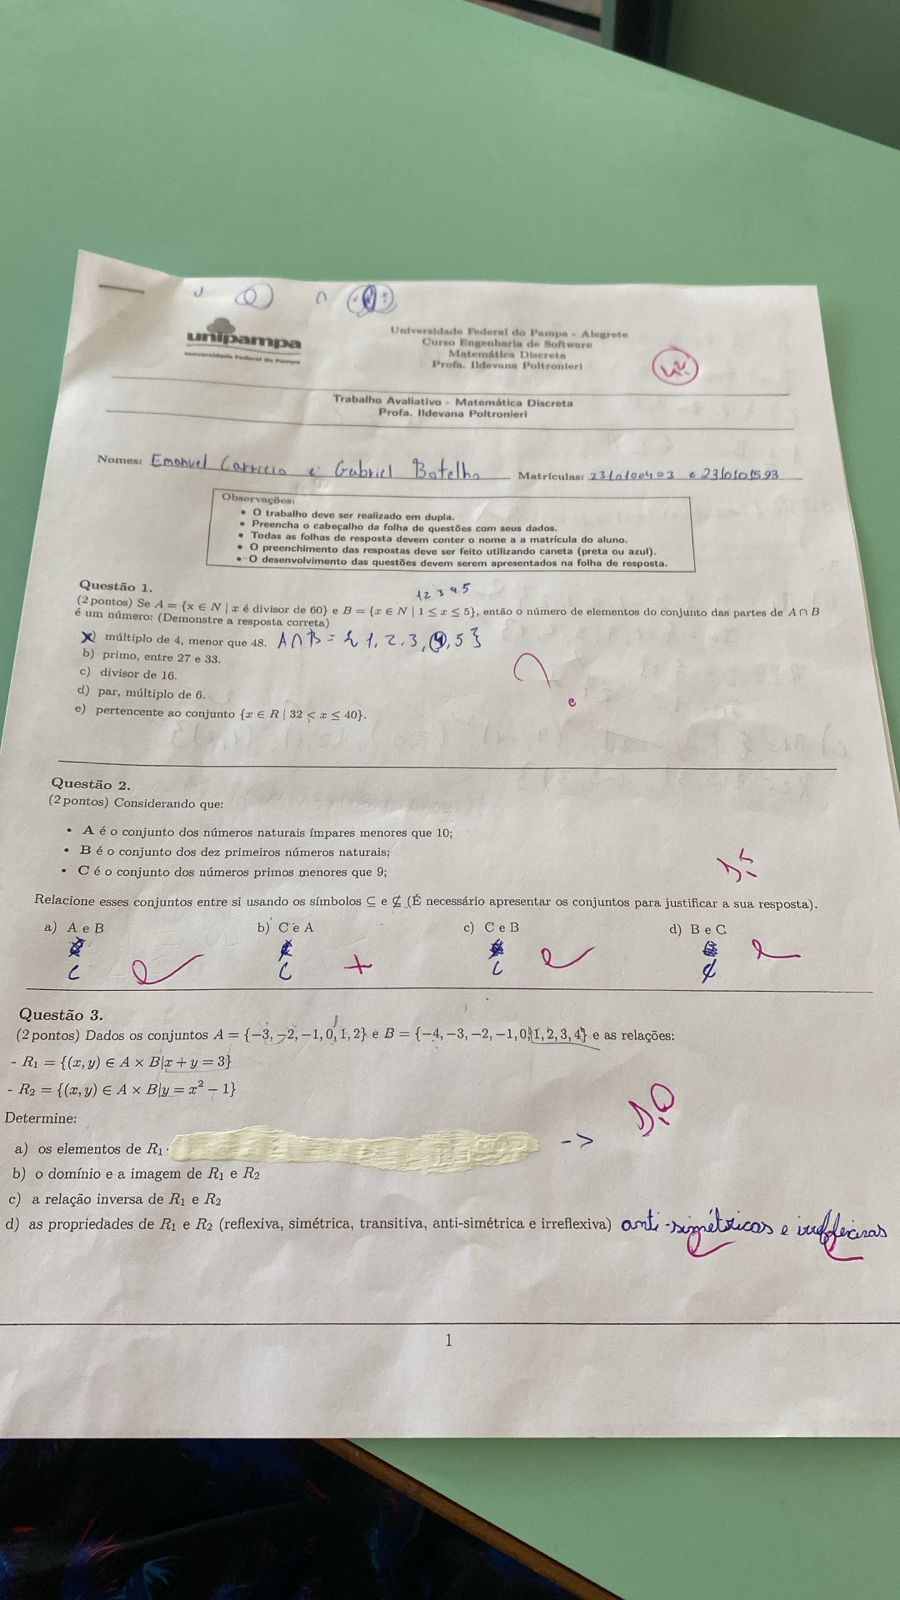 unipampa
Universidade Federal do Pampa
Universidade Federal do Pampa - Alegrete
Curso Engenharia de Software
Matemática Discreta
Profa. Ildevana Poltronieri
Trabalho Avaliativo - Matemática Discreta
Profa. Ildevana Poltronieri
Nomes: Emanuel e Gabriel Botelho Matrículas:
Observações:
• O trabalho deve ser realizado em dupla.
• Preencha o cabeçalho da folha de questões com seus dados.
• Todas as folhas de resposta devem conter o nome a a matrícula do aluno.
• O preenchimento das respostas deve ser feito utilizando caneta (preta ou azul).
• O desenvolvimento das questões devem serem apresentados na folha de resposta.
Questão 1.
1 2 3 4 5
(2 pontos) Se A = {x ∈ N | x é divisor de 60} e B = {x ∈ N | 1 ≤ x ≤ 5}, então o número de elementos do conjunto das partes de A ∩ B
é um número: (Demonstre a resposta correta)
múltiplo de 4, menor que 48. A∩B = {1, 2, 3, 4, 5}
b) primo, entre 27 e 33.
c) divisor de 16.
d) par, múltiplo de 6.
e) pertencente ao conjunto {x ∈ R | 32 < x ≤ 40}.
Questão 2.
(2 pontos) Considerando que:
• A é o conjunto dos números naturais ímpares menores que 10;
• B é o conjunto dos dez primeiros números naturais;
• C é o conjunto dos números primos menores que 9;
Relacione esses conjuntos entre si usando os símbolos ⊆ e ⊈ (É necessário apresentar os conjuntos para justificar a sua resposta).
a) A e B b) C e A c) C e B d) B e C
⊂ ⊂ ⊂ ⊄
Questão 3.
(2 pontos) Dados os conjuntos A = {−3, −2, −1, 0, 1, 2} e B = {−4, −3, −2, −1, 0, 1, 2, 3, 4} e as relações:
- R₁ = {(x, y) ∈ A × B|x + y = 3}
- R₂ = {(x, y) ∈ A × B|y = x² − 1}
Determine:
a) os elementos de R₁ ->
1.0
b) o domínio e a imagem de R₁ e R₂
c) a relação inversa de R₁ e R₂
d) as propriedades de R₁ e R₂ (reflexiva, simétrica, transitiva, anti-simétrica e irreflexiva) anti-simétricas e
1